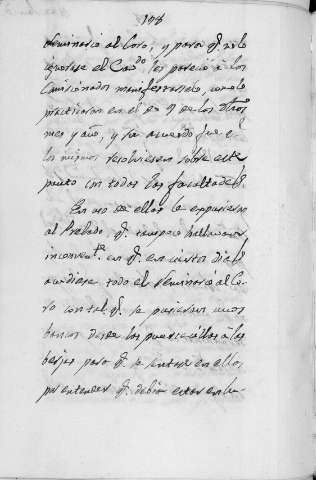 108
Seminario al Coro, y para q.e no lo
ignorase el Cav.do les pareció a los
Comisionados manifestarselo, como lo
practicaron en el de los
mes y año, y su acuerdo fue q.e
los mismos resolviesen sobre este
punto con todas las facultades.
En uso de ellas le expusieron
al Prelado q.e tampoco hallavan
inconven.te en q.e en ciertos dias
acudiese todo el Seminario al Co-
ro con tal q.e se pusieran unos
bancos desde las puertecillas a las
berjas para q.e se entase en ellos
por entender q.e debia estar en lu-